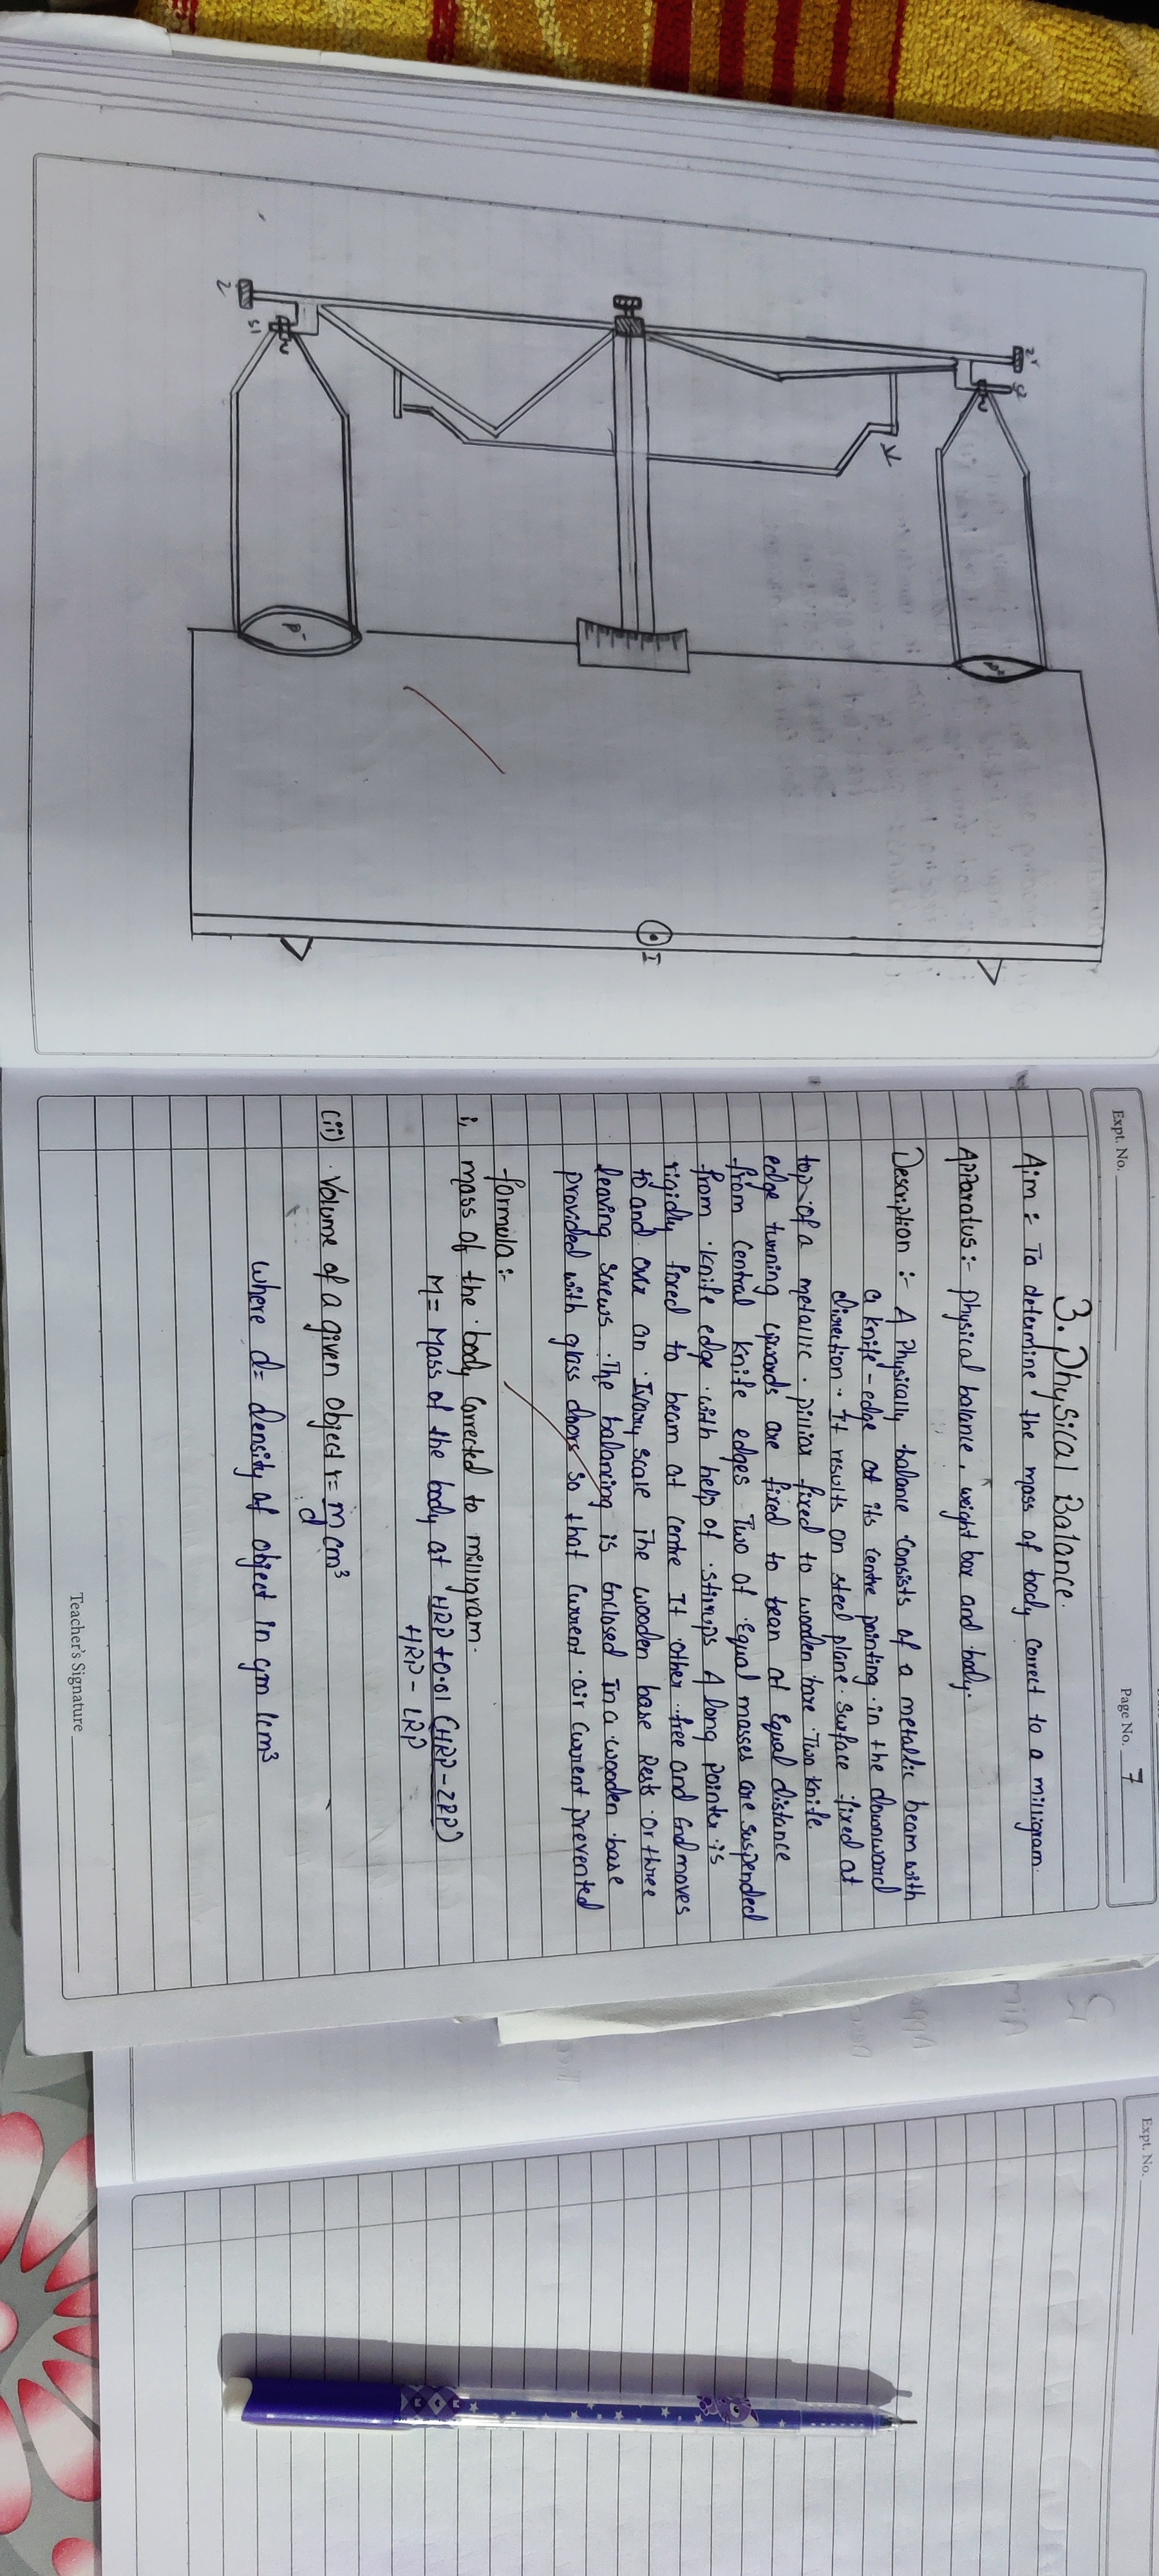 Expt. No.
Page No. 7
3. Physical Balance.
Aim : To determine the mass of body correct to a milligram.
Apparatus :- Physical balance, weight box and body.
Description :- A Physically balance consists of a metallic beam with
a knife-edge at its centre pointing in the downward
direction. It results on steel plane surface fixed at
top of a metallic pillar fixed to wooden bare. Two knife
edge turning upwards are fixed to bean at Equal distance
from central knife edges Two of Equal masses are suspended
from knife edge with help of stirrups A long pointer is
rigidly fixed to beam at centre It other free and End moves
to and over an Ivary scale The wooden base Rests or three
leaving screws. The balancing is Enclosed in a wooden base
provided with glass doors so that current air current prevented
formula :-
i, mass of the body corrected to milligram.
M = Mass of the body at HRP + 0.01 (HRP - ZRP)
HRP - LRP
(ii) Volume of a given object r = m/d cm³
where d = density of object in gm 1cm³
Teacher's Signature
S1
S2
P
I
Expt. No.